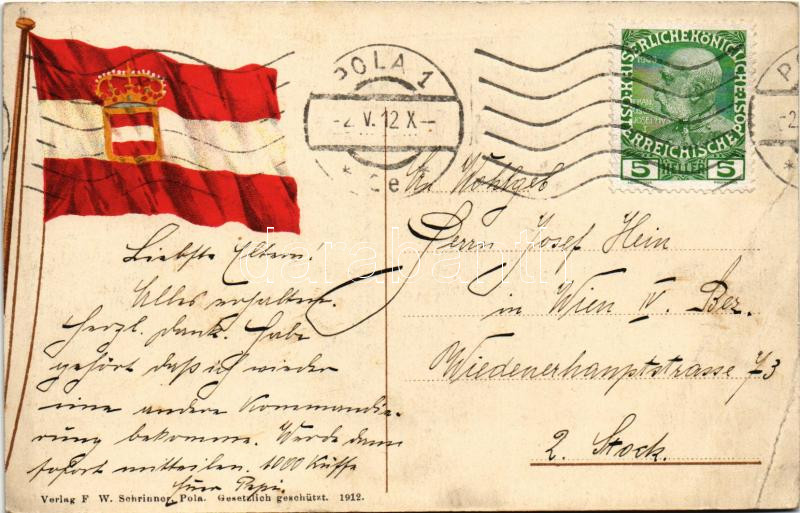 POLA 1
-2.V.12.X-
* 6e *
KAISERLICHE KÖNIGLICHE ÖSTERREICHISCHE POST
5 HELLER 5
An Wohlgeb
Herrn Josef Hein
in Wien IV. Bez.
Wiedenerhauptstrasse
2. Stock.
Liebste Eltern!
Alles erhalten.
Herzl. Dank. Habe
gehört daß ich wieder
eine andere Kommandie-
rung bekomme. Werde dann
sofort mitteilen. 1000 Küsse
Euer Pepi.
Verlag F. W. Schrinner, Pola. Gesetzlich geschützt. 1912.